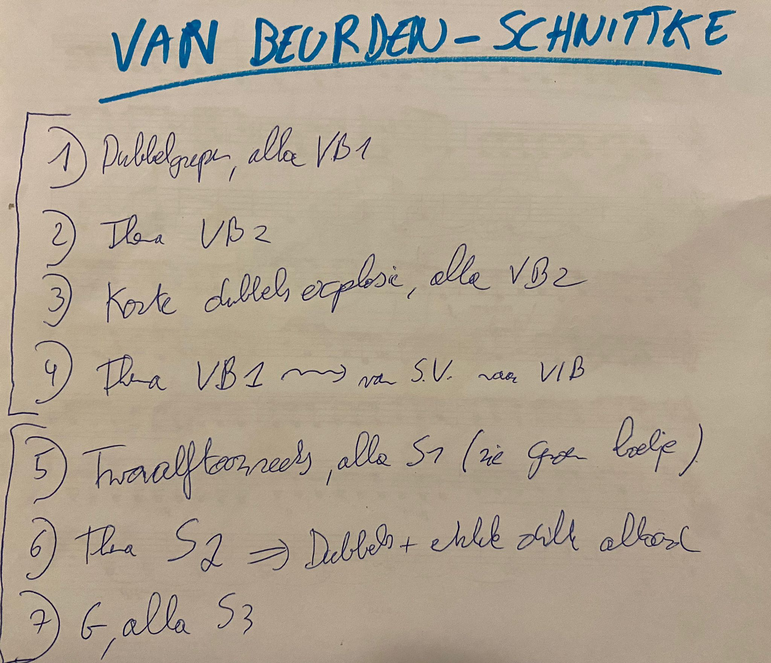 VAN BEURDEN - SCHNITTKE
1) Dubbelgrepen, alla VB1
2) Thema VB2
3) Korte dubbels explosie, alla VB2
4) Thema VB1 ⟿ van S.V. naar VIB
5) Twaalftoonreeks, alla S1 (zie groen boekje)
6) Thema S2 ⇒ Dubbels + enkele akkoord
7) G, alla S3